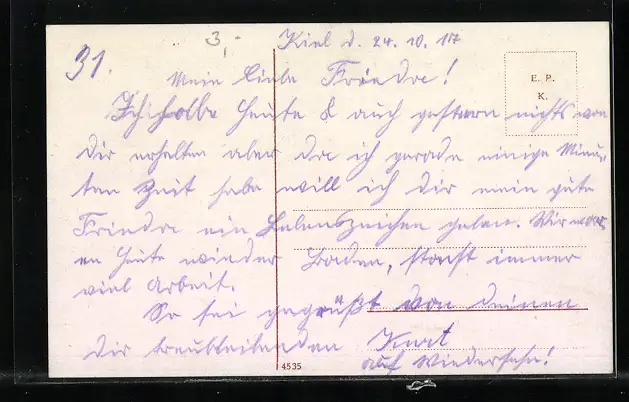 3,-
Kiel d. 24. 10. 17
31.
E. P.
K.
Mein liebe Friedre!
Ich habe heute & auch gestern nichts von
dir erhalten aber da ich gerade einige Minu-
ten Zeit habe will ich dir mein gute
Friedre ein Lebenszeichen geben. Wir war-
en heute wieder Baden, sonst immer
viel Arbeit.
So sei gegrüßt von deinen
dir treubleibenden Kurt
auf Wiedersehn!
4535